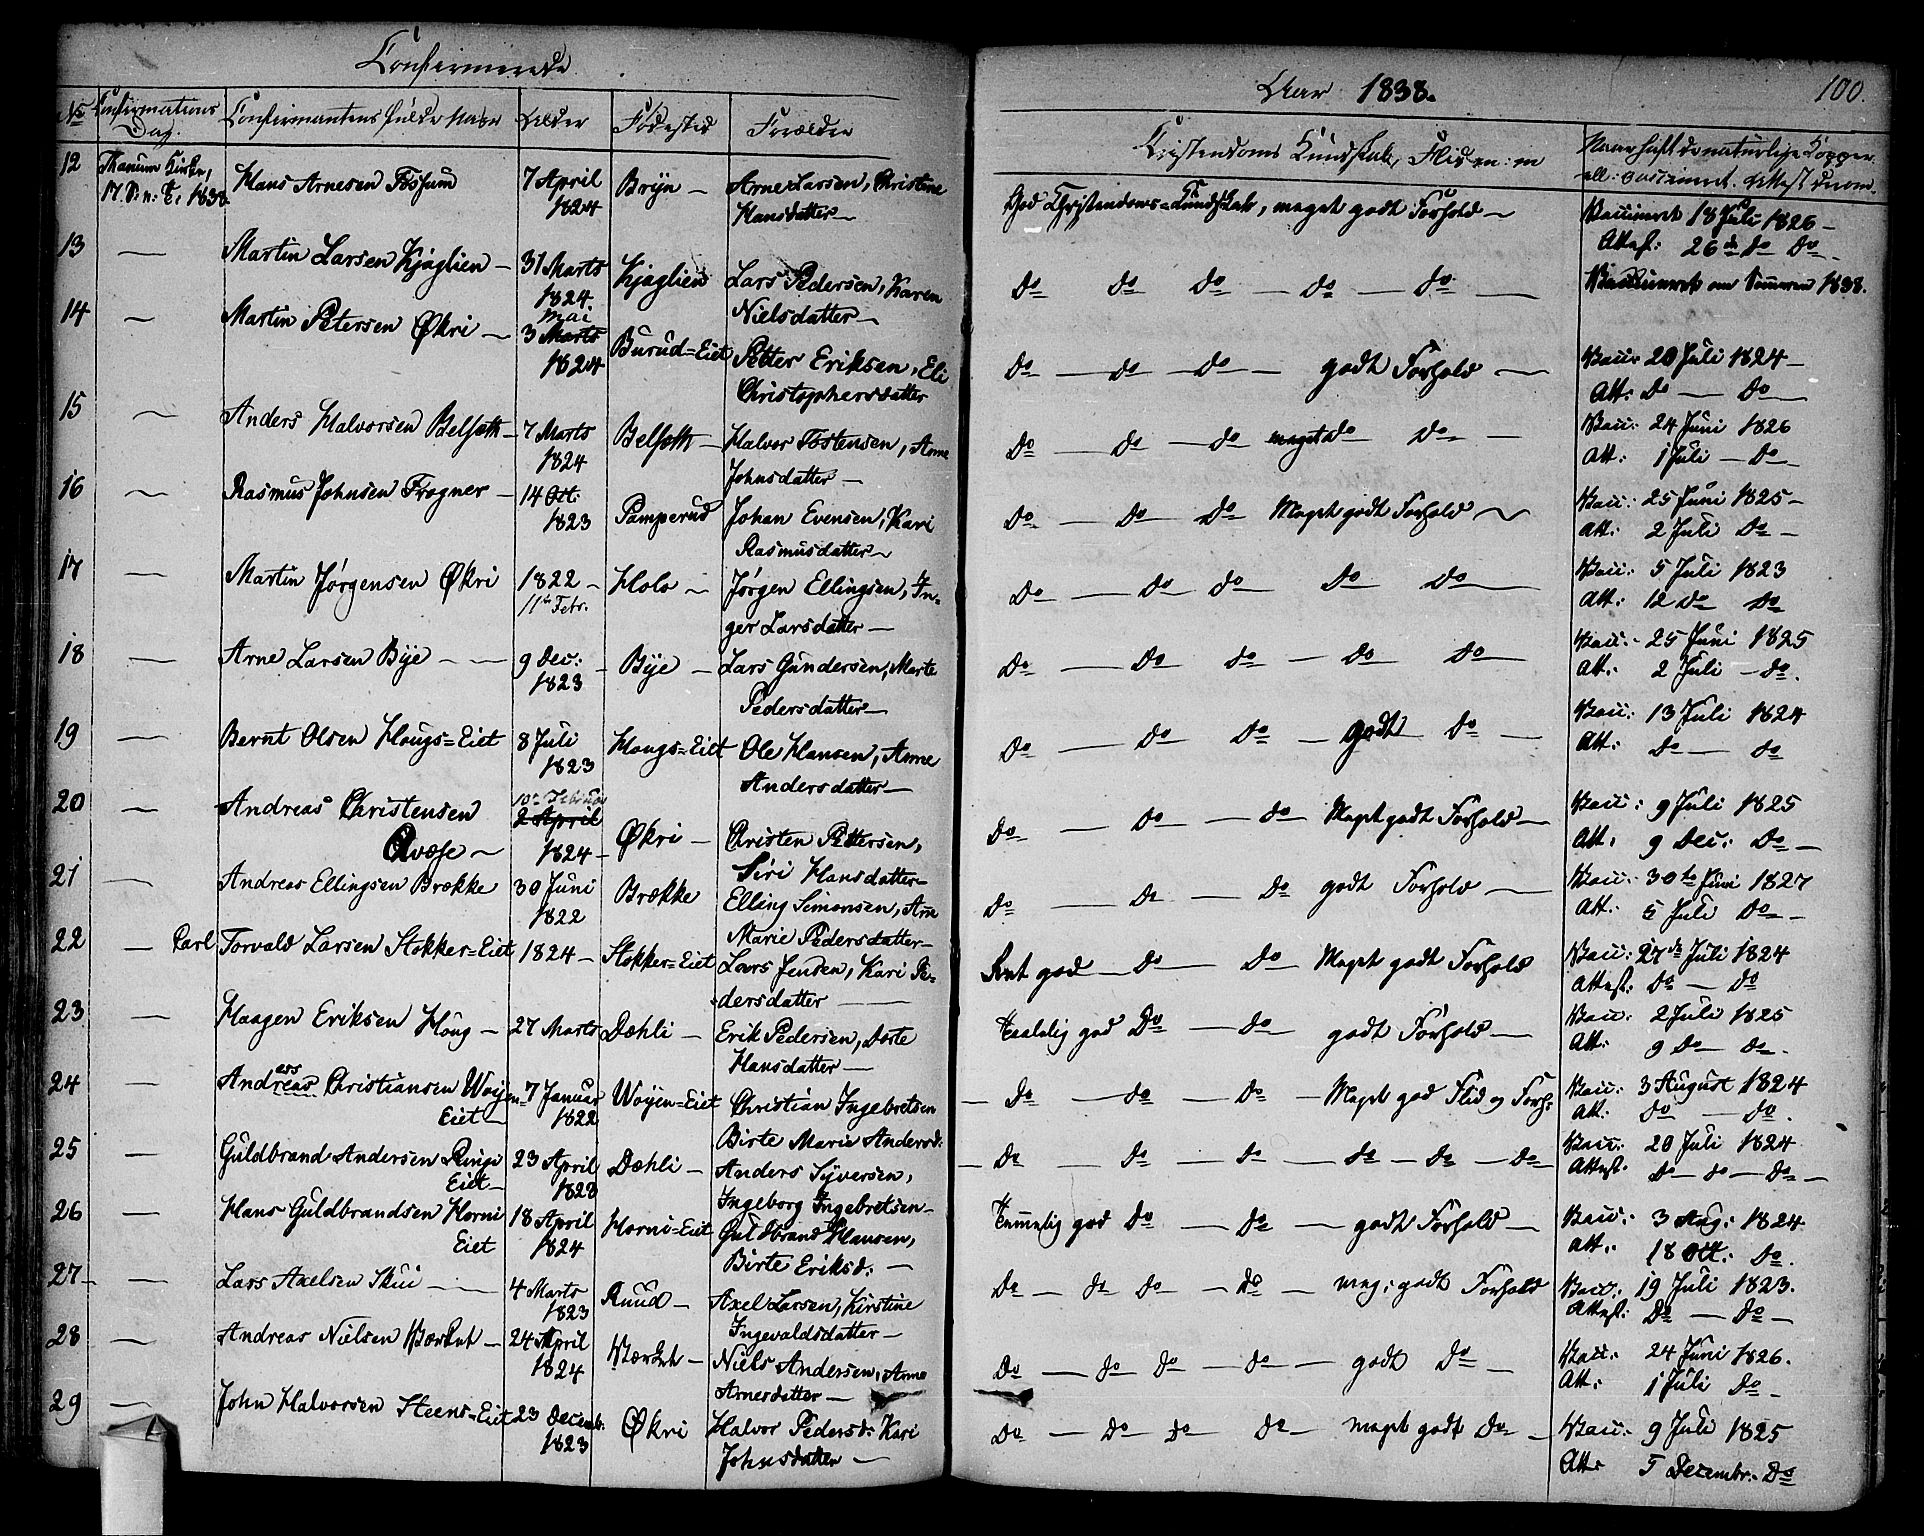 Confirmerede
No Confirmations Dag. Confirmantens fulde Navn Alder Fødested Forældre
12 Thanum Kirke, Hans Arnesen Fossum 7 April Bryn — Arne Larsen, Christine
17 S. n. Tr. 1838 1824 Hansdatter —
13 — Martin Larsen Kjaglien — 31 Marts Kjaglien Lars Pedersen, Karen
1824 Nielsdatter —
14 — Martin Petersen Økri — Mai
3 Marts Burud=Eiet Petter Eriksen, Eli
1824 Christophersdatter
15 — Anders Halvorsen Belseth — 7 Marts Belseth — Halvor Tostensen, Anne
1824 Johnsdatter —
16 — Rasmus Johnsen Frogner — 14 Oct: Pamperud Johan Evensen, Kari
1823 Rasmusdatter —
17 — Martin Jørgensen Økri 1822 — Holo — Jørgen Ellingsen, In-
11te Febr. ger Larsdatter —
18 — Arne Larsen Bye — — 9 Dec: — Bye — Lars Gundersen, Marte
1823 Pedersdatter —
19 — Bernt Olsen Hougs=Eiet 8 Juli Hougs=Eiet Ole Hansen, Anne
1823 Andersdatter —
20 — Andreas Christensen 10de Februar
2 April Økri — Christen Pettersen,
Qvæse — 1824 — Siri Hansdatter —
21 — Andreas Ellingsen Brække 30 Juni Brække Elling Simonsen, Ane
1822 Marie Pedersdatter —
22 — Carl Torvald Larsen Stokker=Eiet 1824 — Stokker=Eiet Lars Jensen, Kari Pe-
dersdatter —
23 — Haagen Eriksen Houg — 27 Marts Dæhli — Erik Pedersen, Dorte
Hansdatter —
24 — Andreas Christiansen Wøyen= 7 Januar Wøyen=Eiet Christian Ingebretsen
ers
Eiet — 1822 Birte Marie Andersd:
25 — Guldbrand Andersen Ringe 23 April Dæhli — Anders Syversen,
Eiet — 1823 Ingeborg Ingebretsen —
26 — Hans Guldbrandsen Horni 18 April Horni=Eiet Guldbrand Hansen,
Eiet 1824 Birte Eriksd: —
27 — — Lars Axelsen Skui — 4 Marts Ruud — Axel Larsen, Kirstine
1823 Ingevaldsdatter —
28 — Andreas Nielsen Værket — 24 April Værket — Niels Andersen, Anne
1824 Arnesdatter —
29 — John Halvorsen Steens=Eiet 23 Decemb. Økri Halvor Pedersd: Kari
1823 Johnsdatter —
Aar 1838. 100.
Christendoms Kundskab, Flid en: m Naar havt de naturlige Kopper
ell: vaccineret. Attest derom.
God Christendoms=Kundskab, meget godt Forhold — Vaccineret 18 Juli 1826 —
Attest: 26de Do Do.
Do Do Do — Do — Do — Vaccineret om Sommeren 1838.
Do — Do — Do — godt Forhold — Vacc: 20 Juli 1824 —
Att: Do — Do —
Do — Do — Do meget Do Do — Vacc: 24 Juni 1826
Att: 1 Juli — Do —
Do — Do — Do Meget godt Forhold — Vacc: 25 Juni 1825 —
Att: 2 Juli Do —
Do — Do — Do Do Do — Vacc: 5 Juli 1823
Att: 12 Do Do
Do — Do Do — Do Do — Vacc: 25 Juni 1825
Att: 2 Juli — Do.
Do — Do Do — godt Do — Vacc: 13 Juli 1824
Att: Do — Do
Do — Do — Do Meget godt Forhold — Vacc: 9 Juli 1825
Att: 9 Dec: Do —
Do — Do — Do godt Forhold — Vacc: 30te Juni 1827
Att: 5 Juli Do —
Ret god — Do — Do Meget godt Forhold Vacc: 27de Juli 1824
Attest: Do — Do
Taalelig god Do — Do — godt Forhold — Vacc: 2 Juli 1825
Att: 9 Do — Do.
— Do — Do — Do — Meget god Flid og Forh: Vacc: 3 August 1824
Att: Do — Do.
— Do — Do — Do — Do — Do — Do — Vacc: 20 Juli 1824
Attest. Do — Do — Do —
Temmelig god Do — Do — godt Forhold — Vacc: 3 Aug: 1824
Att: 18 Oct: Do.
Do — Do Do — Do — meg: godt Forhold Vacc: 19 Juli 1823.
Attest: Do — Do —
Do — Do Do — Do — godt Do — Vacc: 24 Juni 1826.
Att: 1 Juli Do —
Do — Do Do — Do — meget godt Do — Vacc: 9 Juli 1825
Att: 5 Decembr. Do